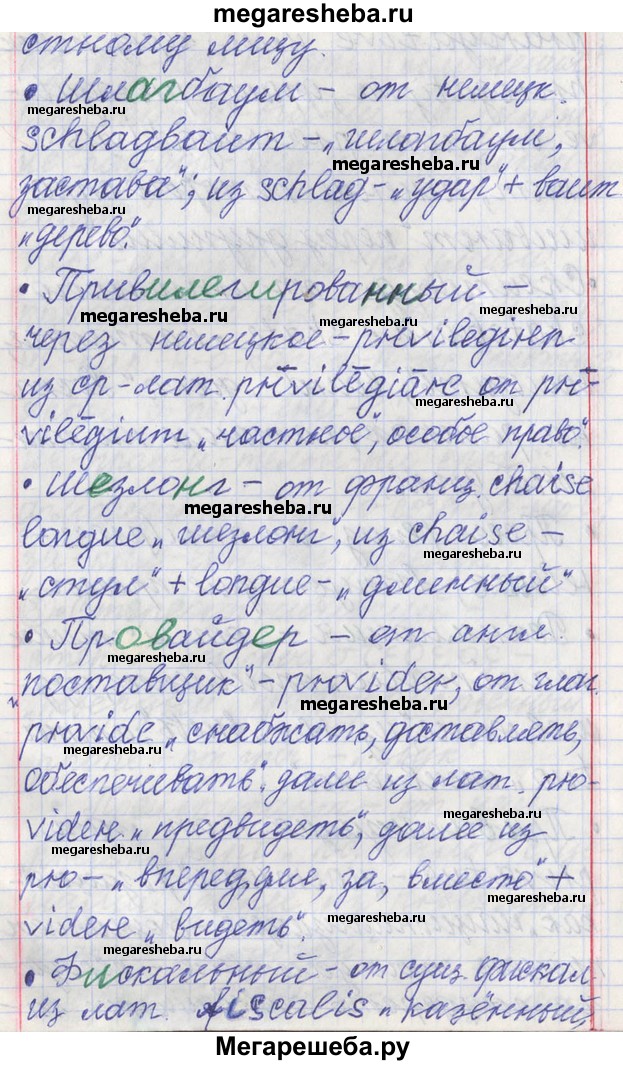 megaresheba.ru
стному лицу.
• Шлагбаум – от немецк.
megaresheba.ru
schlagbaum – „шлагбаум,
megaresheba.ru
застава“; из schlag – „удар“ + baum
megaresheba.ru
„дерево“.
• Привилегированный –
megaresheba.ru
megaresheba.ru
через немецкое – privilegiren
из ср-лат. privilēgiāre от pri-
megaresheba.ru
vilēgium „частное, особое право“.
• Шезлонг – от франц. chaise
megaresheba.ru
longue „шезлонг“, из chaise –
megaresheba.ru
„стул“ + longue – „длинный“
• Провайдер – от англ.
megaresheba.ru
„поставщик“ – provider, от глаг.
megaresheba.ru
provide „снабжать, доставлять,
megaresheba.ru
обеспечивать“. далее из лат. pro-
megaresheba.ru
videre „предвидеть“, далее из
megaresheba.ru
pro- – „вперед, для, за, вместо“ +
megaresheba.ru
videre „видеть“.
megaresheba.ru
megaresheba.ru
• Фискальный – от сущ. фискал
из лат. fiscalis „казённый,
megaresheba.ru
Мегарешеба.ру